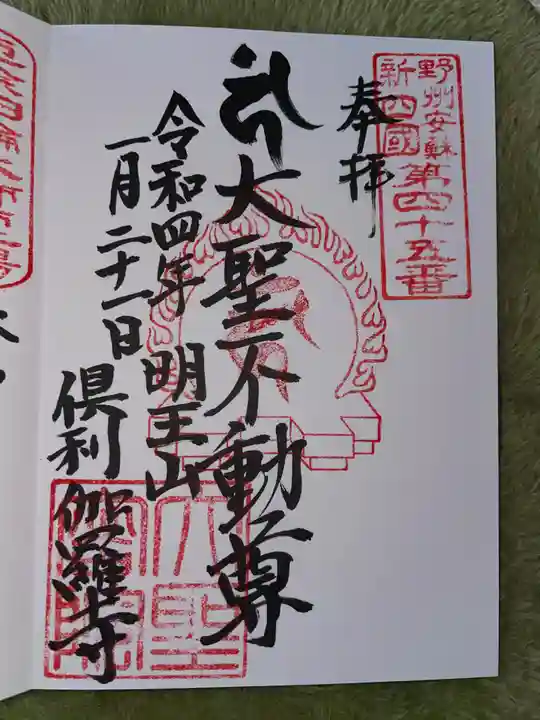 野州安蘇
新四國
第四十五番
奉拝
大聖不動尊
令和四年
一月二十一日
明王山
倶利伽羅寺
大聖